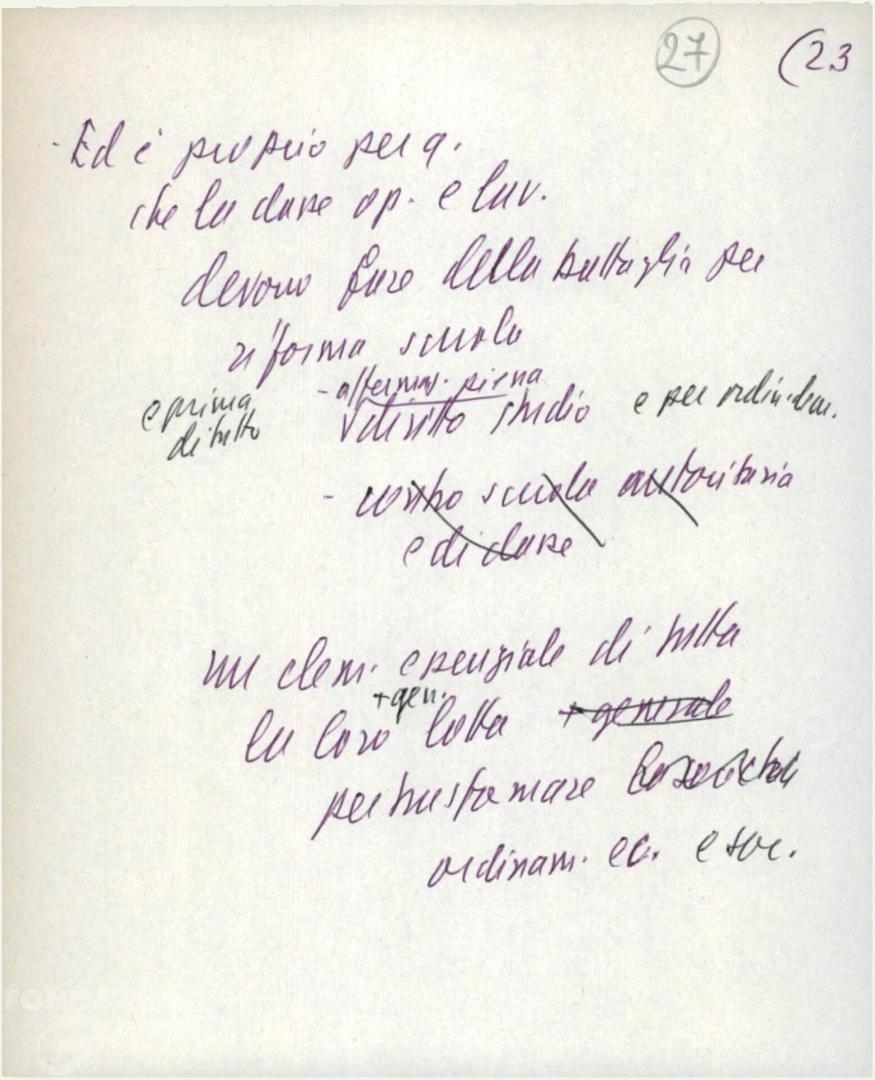 27 (23
- Ed è proprio per q.
che la classe op. e lav.
devono fare della battaglia per
riforma scuola
- affermaz. piena
e prima di tutto
diritto studio e per ordin. dem.
- contro scuola autoritaria
e di classe
un elem. essenziale di tutta
+ gen.
la loro lotta + generale
per trasformare la società
ordinam. ec. e soc.
FONDAZ